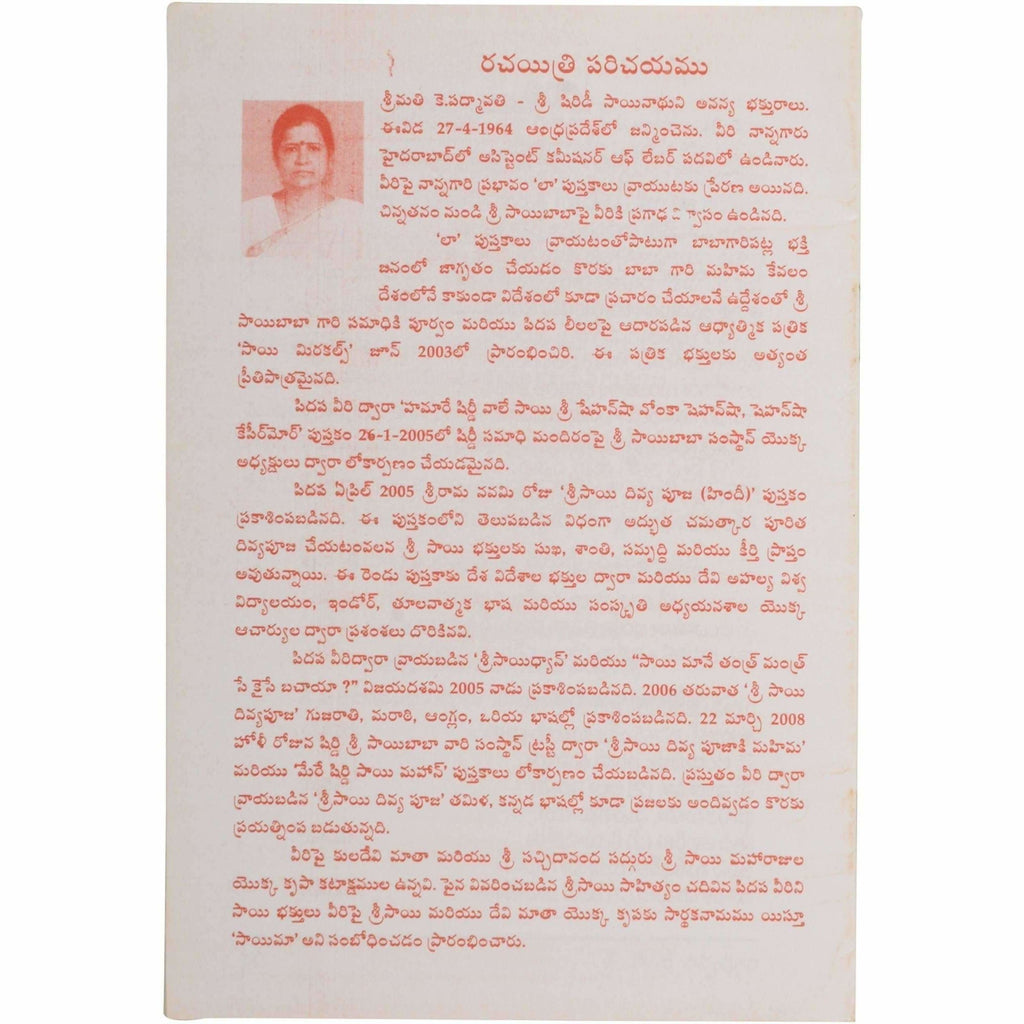 రచయిత్రి పరిచయము
శ్రీమతి కె.పద్మావతి - శ్రీ షిరిడీ సాయినాథుని అనన్య భక్తురాలు.
ఈవిడ 27-4-1964 ఆంధ్రప్రదేశ్‌లో జన్మించెను. వీరి నాన్నగారు
హైదరాబాద్‌లో అసిస్టెంట్ కమీషనర్ ఆఫ్ లేబర్ పదవిలో ఉండినారు.
వీరిపై నాన్నగారి ప్రభావం ‘లా’ పుస్తకాలు వ్రాయుటకు ప్రేరణ అయినది.
చిన్నతనం నుండి శ్రీ సాయిబాబాపై వీరికి ప్రగాఢ ఉండినది.
‘లా’ పుస్తకాలు వ్రాయటంతోపాటుగా బాబాగారిపట్ల భక్తి
జనంలో జాగృతం చేయడం కొరకు బాబా గారి మహిమ కేవలం
దేశంలోనే కాకుండా విదేశంలో కూడా ప్రచారం చేయాలనే ఉద్దేశంతో శ్రీ
సాయిబాబా గారి సమాధికి పూర్వం మరియు పిదప లీలలపై ఆదారపడిన ఆధ్యాత్మిక పత్రిక
‘సాయి మిరకల్స్’ జూన్ 2003లో ప్రారంభించిరి. ఈ పత్రిక భక్తులకు అత్యంత
ప్రీతిపాత్రమైనది.
పిదప వీరి ద్వారా ‘హమారే షిర్డీ వాలే సాయి శ్రీ షేహన్‌షా వోంకా షెహన్‌షా, షెహన్‌షా
కేసీర్‌మోర్’ పుస్తకం 26-1-2005లో షిర్డీ సమాధి మందిరంపై శ్రీ సాయిబాబా సంస్థాన్ యొక్క
అధ్యక్షులు ద్వారా లోకార్పణం చేయడమైనది.
పిదప ఏప్రిల్ 2005 శ్రీరామ నవమి రోజు ‘శ్రీసాయి దివ్య పూజ (హిందీ)’ పుస్తకం
ప్రకాశింపబడినది. ఈ పుస్తకంలోని తెలుపబడిన విధంగా అద్భుత చమత్కార పూరిత
దివ్యపూజ చేయటంవలన శ్రీ సాయి భక్తులకు సుఖ, శాంతి, సమృద్ధి మరియు కీర్తి ప్రాప్తం
అవుతున్నాయి. ఈ రెండు పుస్తకాకు దేశ విదేశాల భక్తుల ద్వారా మరియు దేవి అహల్య విశ్వ
విద్యాలయం, ఇండోర్, తూలనాత్మక భాష మరియు సంస్కృతి అధ్యయనశాల యొక్క
ఆచార్యుల ద్వారా ప్రశంశలు దొరికినవి.
పిదప వీరిద్వారా వ్రాయబడిన ‘శ్రీసాయిధ్యాన్’ మరియు “సాయి మానే తంత్ర్ మంత్ర్
సే కైసే బచాయా ?” విజయదశమి 2005 నాడు ప్రకాశింపబడినది. 2006 తరువాత ‘శ్రీ సాయి
దివ్యపూజ’ గుజరాతి, మరాఠి, ఆంగ్లం, ఒరియ భాషల్లో ప్రకాశింపబడినది. 22 మార్చి 2008
హోళీ రోజున షిర్డి శ్రీ సాయిబాబా వారి సంస్థాన్ ట్రస్టీ ద్వారా ‘శ్రీసాయి దివ్య పూజాకి మహిమ’
మరియు ‘మేరే షిర్డి సాయి మహాన్’ పుస్తకాలు లోకార్పణం చేయబడినది. ప్రస్తుతం వీరి ద్వారా
వ్రాయబడిన ‘శ్రీసాయి దివ్య పూజ’ తమిళ, కన్నడ భాషల్లో కూడా ప్రజలకు అందివ్వడం కొరకు
ప్రయత్నింప బడుతున్నది.
వీరిపై కులదేవి మాతా మరియు శ్రీ సచ్చిదానంద సద్గురు శ్రీ సాయి మహారాజుల
యొక్క కృపా కటాక్షముల ఉన్నవి. పైన వివరించబడిన శ్రీసాయి సాహిత్యం చదివిన పిదప వీరివి
సాయి భక్తులు వీరిపై శ్రీసాయి మరియు దేవి మాతా యొక్క కృపకు సార్థకనామము యిస్తూ
‘సాయిమా’ అని సంబోధించడం ప్రారంభించారు.